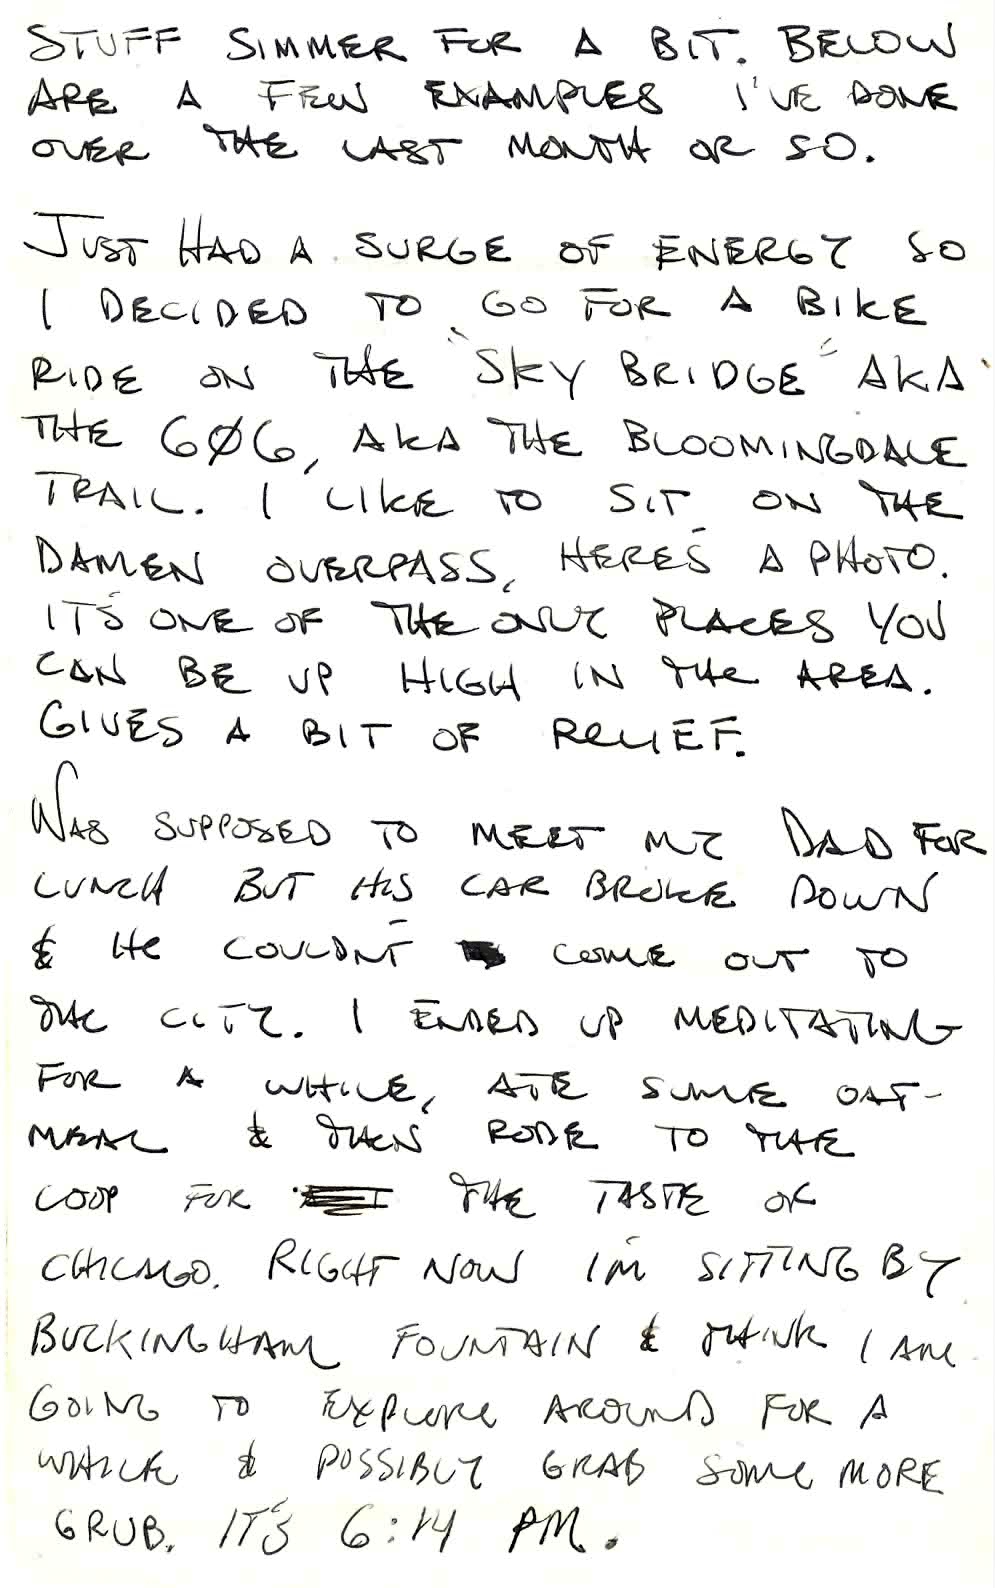 STUFF SIMMER FOR A BIT. BELOW
ARE A FEW EXAMPLES I'VE DONE
OVER THE LAST MONTH OR SO.
JUST HAD A SURGE OF ENERGY SO
I DECIDED TO GO FOR A BIKE
RIDE ON THE "SKY BRIDGE" AKA
THE 606, AKA THE BLOOMINGDALE
TRAIL. I LIKE TO SIT ON THE
DAMEN OVERPASS, HERE'S A PHOTO.
IT'S ONE OF THE ONLY PLACES YOU
CAN BE UP HIGH IN THE AREA.
GIVES A BIT OF RELIEF.
WAS SUPPOSED TO MEET MY DAD FOR
LUNCH BUT HIS CAR BROKE DOWN
& HE COULDN'T COME OUT TO
THE CITY. I ENDED UP MEDITATING
FOR A WHILE, ATE SOME OAT-
MEAL & THEN RODE TO THE
LOOP FOR THE TASTE OF
CHICAGO. RIGHT NOW I'M SITTING BY
BUCKINGHAM FOUNTAIN & THINK I AM
GOING TO EXPLORE AROUND FOR A
WHILE & POSSIBLY GRAB SOME MORE
GRUB. IT'S 6:14 PM.